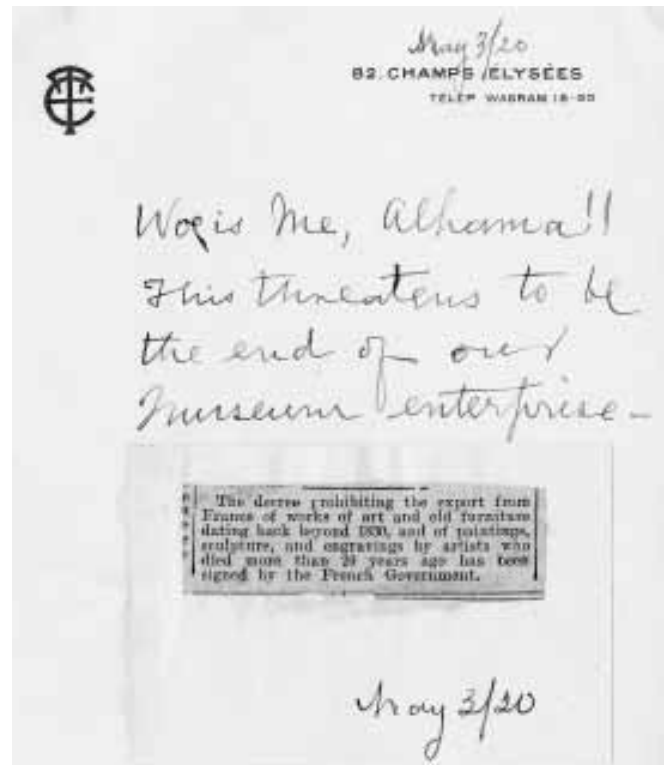 May 3/20
82. CHAMPS ELYSÉES
TÉLÉP WAGRAM
Woe is Me, Alhama!!
This threatens to be
the end of our
Museum enterprise-
The decree prohibiting the export from
France of works of art and old furniture
dating back beyond 1830, and of paintings,
sculpture, and engravings by artists who
died more than 20 years ago has been
signed by the French Government.
May 3/20